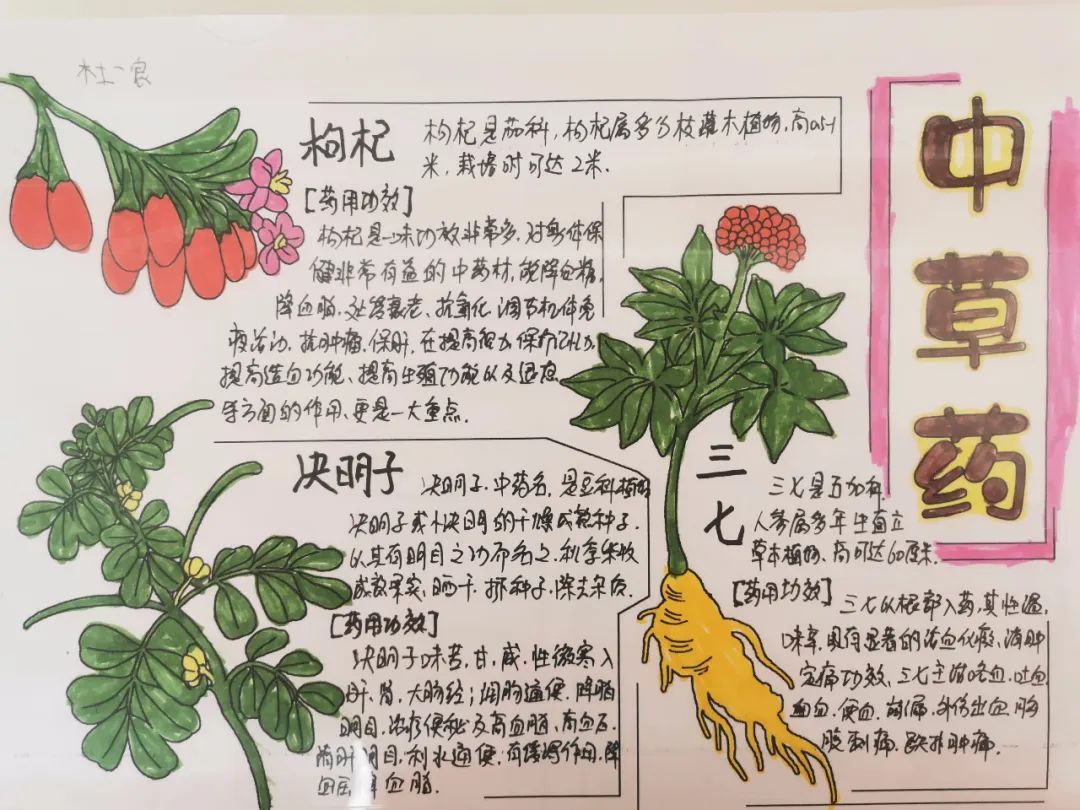 中草药
枸杞
枸杞是茄科,枸杞属多分枝灌木植物,高0.5-1
米,栽培时可达2米.
[药用功效]
枸杞是一味功效非常多,对身体保
健非常有益的中药材,能降血糖,
降血脂,延缓衰老、抗氧化、调节机体免
疫活力、抗肿瘤、保肝,在提高视力、保护视力,
提高造血功能、提高生殖功能以及
等方面的作用,更是一大重点.
决明子
决明子,中药名,是豆科植物
决明子或小决明的干燥成熟种子.
以其有明目之功而名之.秋季采收
成熟果实,晒干,打种子,除去杂质.
[药用功效]
决明子味苦,甘,咸,性微寒入
肝,肾,大肠经;润肠通便,降脂
明目,治疗便秘及高血脂,高血压.
清肝明目,利水通便,有缓泻作用,降
血压降血脂.
三七
三七是五加科
人参属多年生直立
草本植物,高可达60厘米.
[药用功效]
三七以根部入药,其性温,
味辛,具有显著的活血化瘀,消肿
定痛功效、三七主治咯血,吐血
衄血,便血,崩漏,外伤出血,胸
腹刺痛,跌扑肿痛.